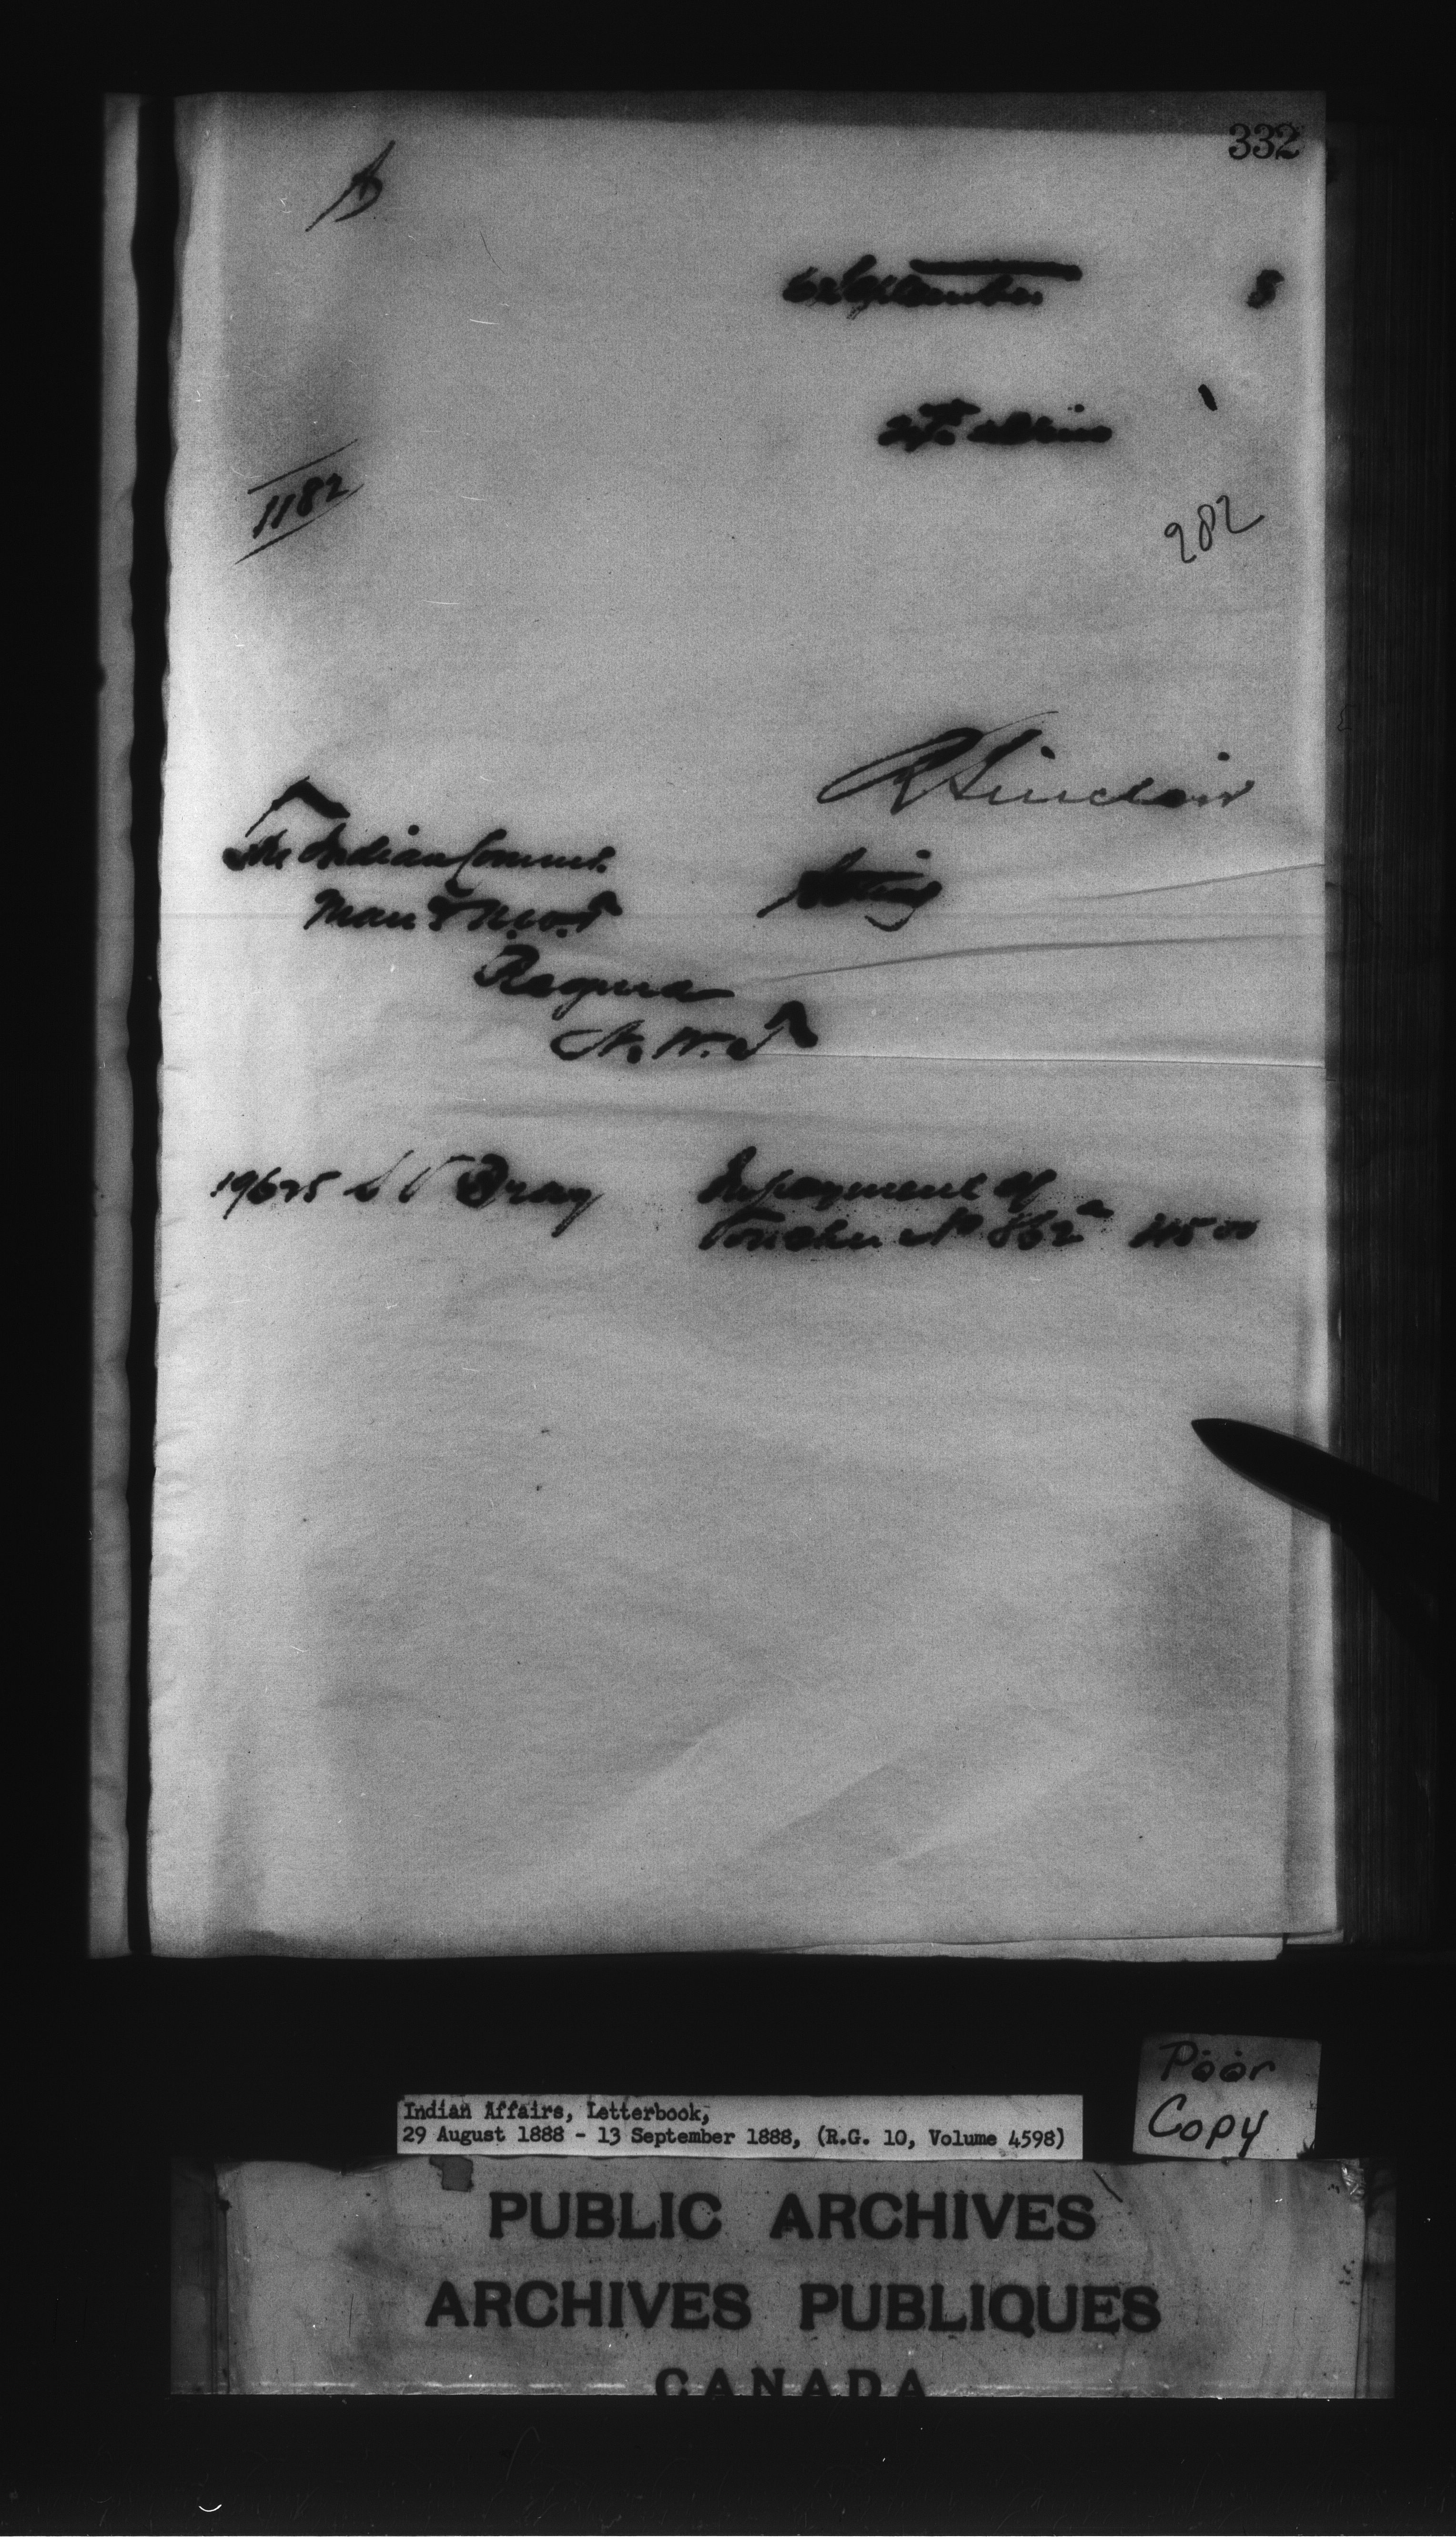 332
6 September 8
ultimo
1182
282
R Sinclair
The Indian Commr.
Acting
Man & N.W.T
Regina
N.W.T
19625 Bray In payment of
Voucher No 862a 45 00
Poor
Copy
Indian Affairs, Letterbook,
29 August 1888 - 13 September 1888, (R.G. 10, Volume 4598)
PUBLIC ARCHIVES
ARCHIVES PUBLIQUES
CANADA